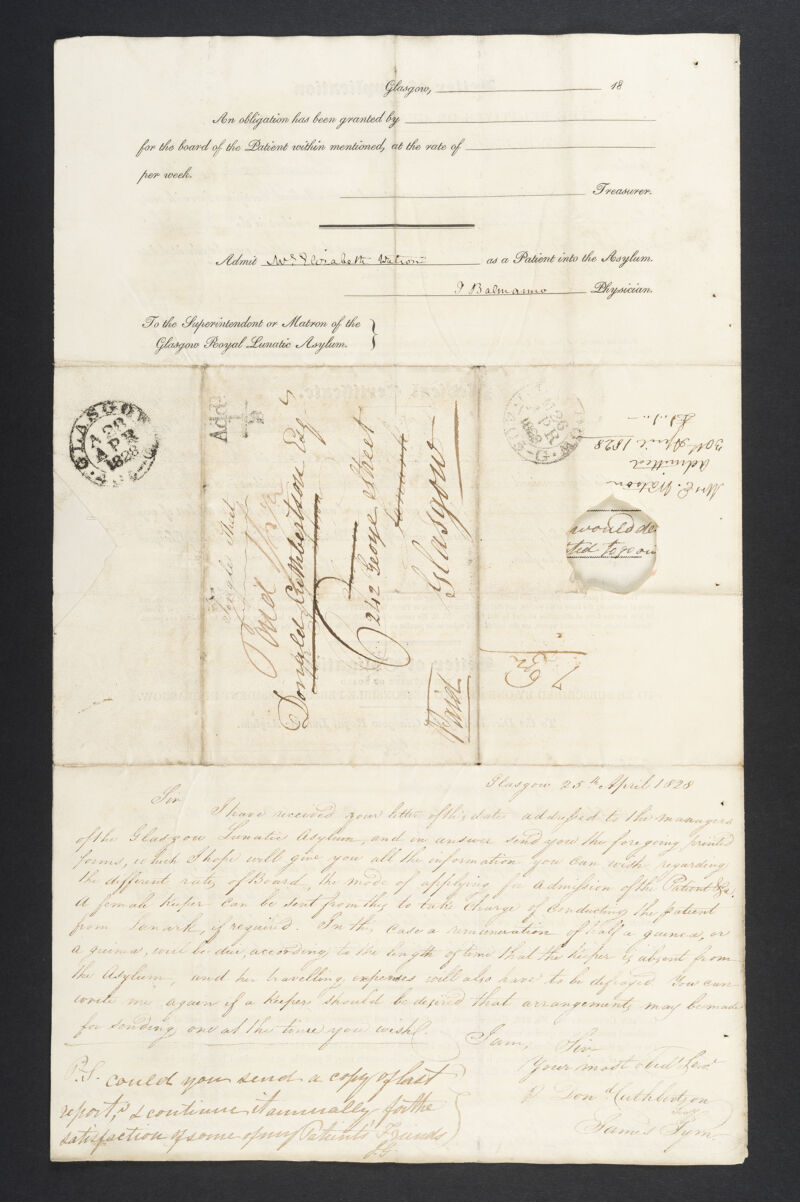 Glasgow, 18
An obligation has been granted by
for the board of the Patient within mentioned, at the rate of
per week.
Treasurer.
Admit Mrs Elizabeth Watson as a Patient into the Asylum.
J Balmanno Physician.
To the Superintendent or Matron of the
Glasgow Royal Lunatic Asylum.
GLASGOW
A 28
APR
1828
Addl
1/2
Temple Street
Paid
Donald Cuthbertson Esqr
242 George Street
Lanark
Glasgow
Paid
26
APR
1828
Mrs E. Watson
Admitted
30th April 1828
would de
ted to go on
Glasgow 25th April 1828
Sir
I have received your letter of this date addressed to the managers
of the Glasgow Lunatic Asylum, and in answer send you the foregoing printed
forms, which I hope will give you all the information you can wish regarding
the different rates of Board, the mode of applying for admission of the Patient &c.
A female Keeper can be sent from this to take charge of conducting the patient
from Lanark, if required. In this case a remuneration of half a guinea, or
a guinea, will be due, according to the length of time that the Keeper is absent from
the Asylum, and her travelling expenses will also have to be defrayed. You can
write me again if a Keeper should be desired that arrangements may be made
for sending one at the time you wish.
I am, Sir
Your most obedt Servt
Dond Cuthbertson
James Gym
P.S. could you send a copy of last
report, & continue it annually for the
satisfaction of some of my Patients' Friends